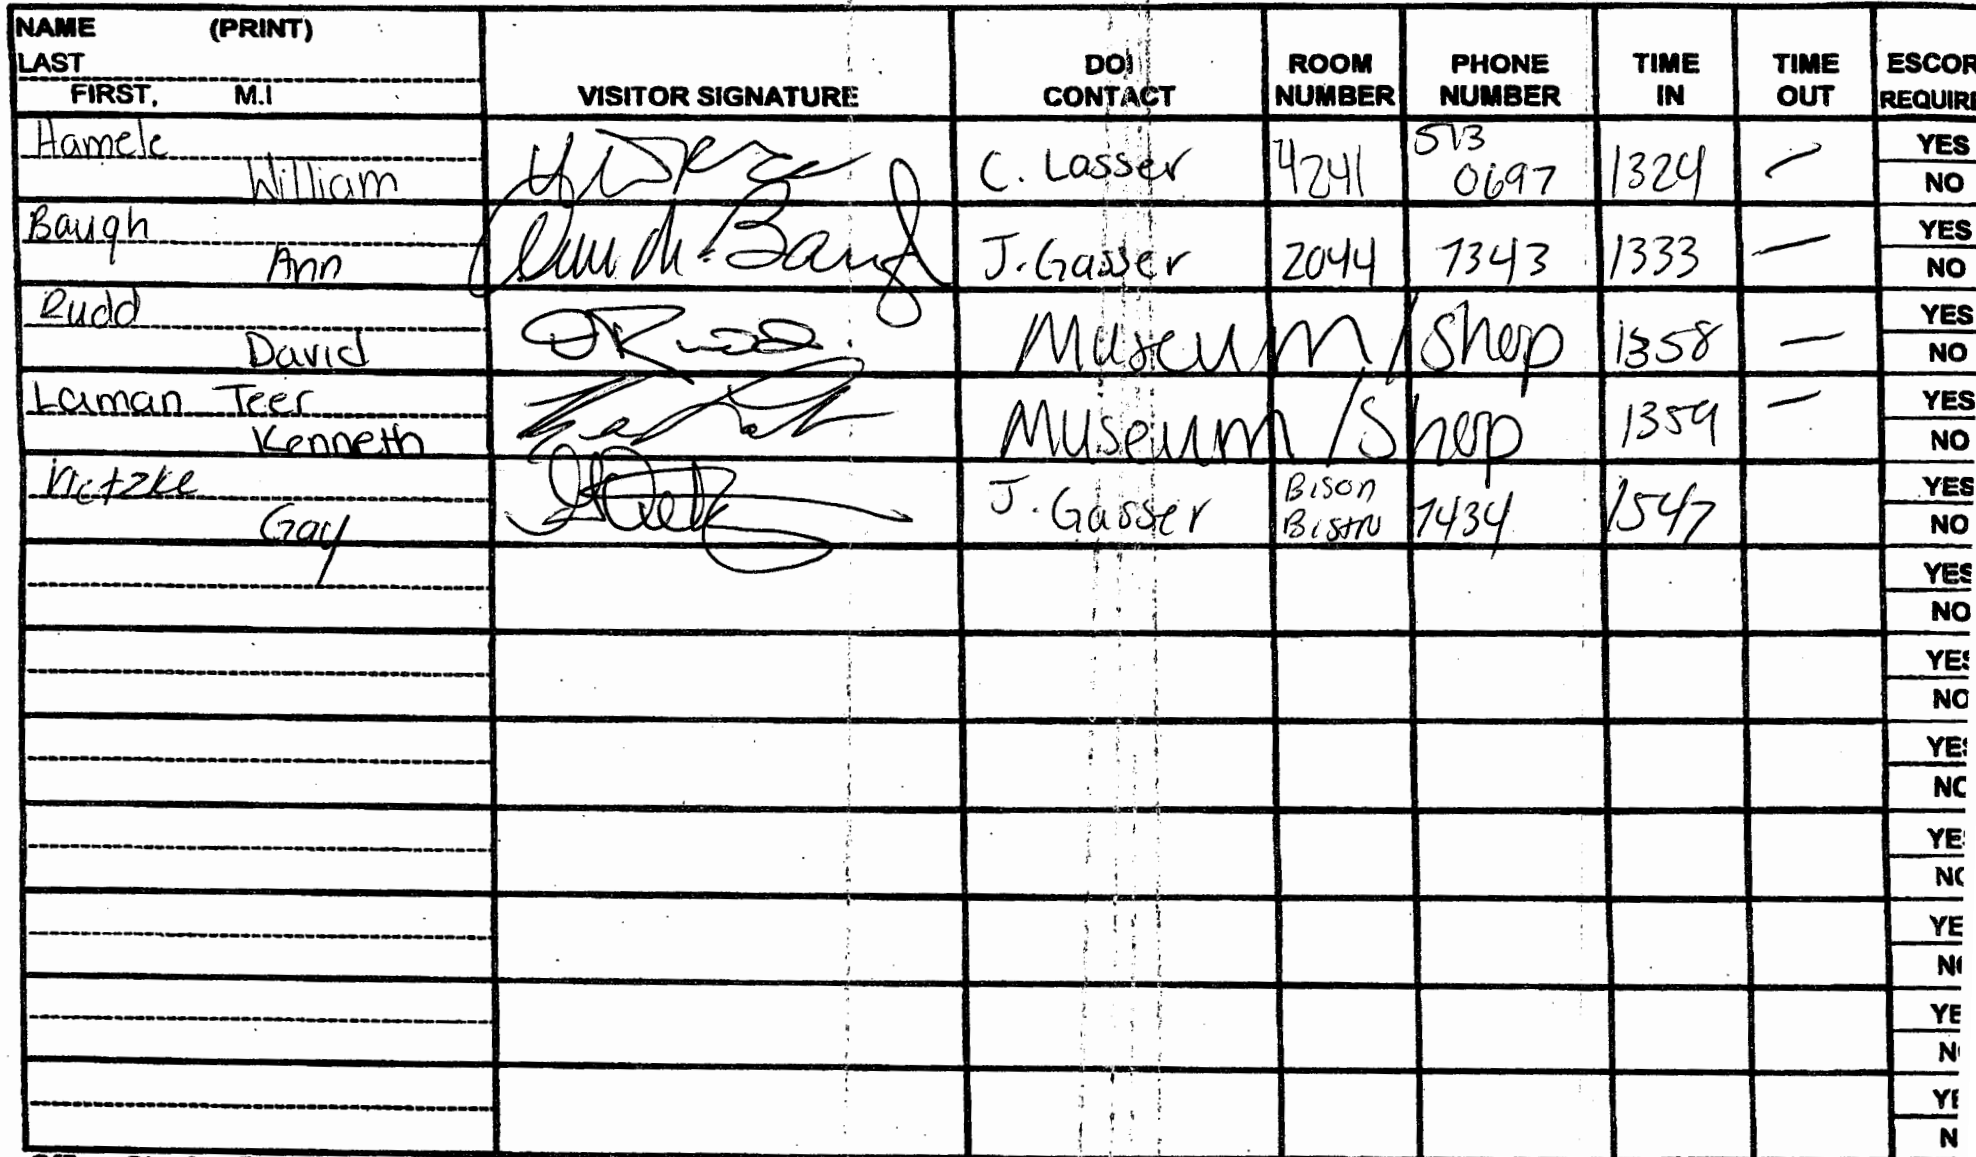 NAME (PRINT)
LAST
FIRST, M.I
VISITOR SIGNATURE
DOI CONTACT
ROOM NUMBER
PHONE NUMBER
TIME IN
TIME OUT
ESCOR
REQUIRE
Hamele
William
C. Lasser
4241
513
0697
1324
—
YES
NO
Baugh
Ann
Ann M. Baugh
J. Gasser
2044
7343
1333
—
YES
NO
Rudd
David
D Rudd
Museum/Shop
1358
—
YES
NO
Laman Teer
Kenneth
Museum/Shop
1359
—
YES
NO
Gay
J. Gasser
Bison
Bistro
7434
1547
YES
NO
YES
NO
YES
NO
YES
NO
YE
NO
YE
NO
YE
N
YE
N